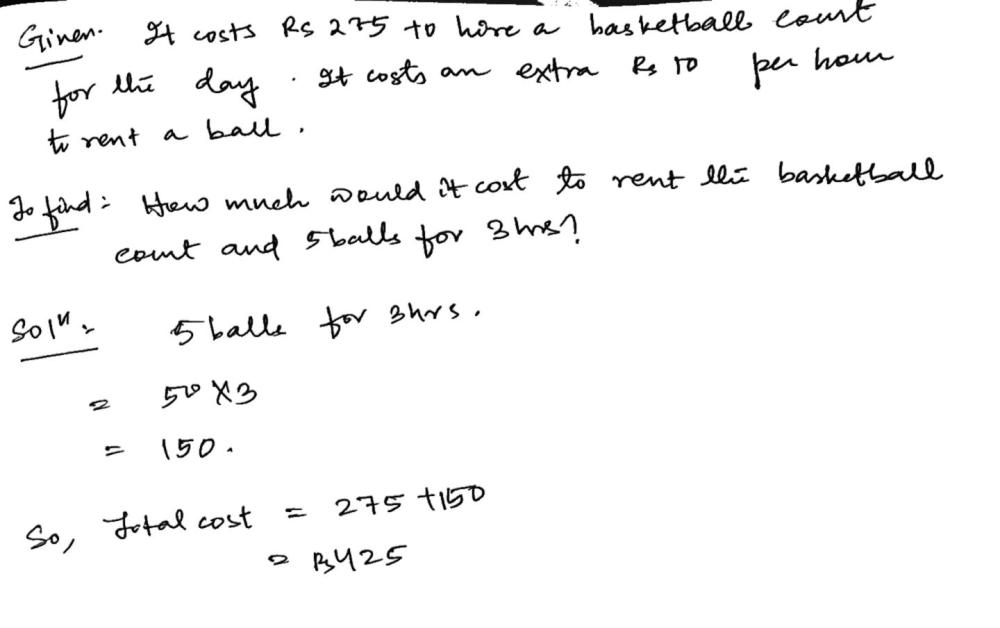 Given. It costs Rs 275 to hire a basketball court
for the day. It costs an extra Rs 10 per hour
to rent a ball.
To find: How much would it cost to rent the basketball
court and 5 balls for 3 hrs?
Solⁿ: 5 balls for 3hrs.
= 50 X 3
= 150.
So, Total cost = 275 + 150
= Rs 425